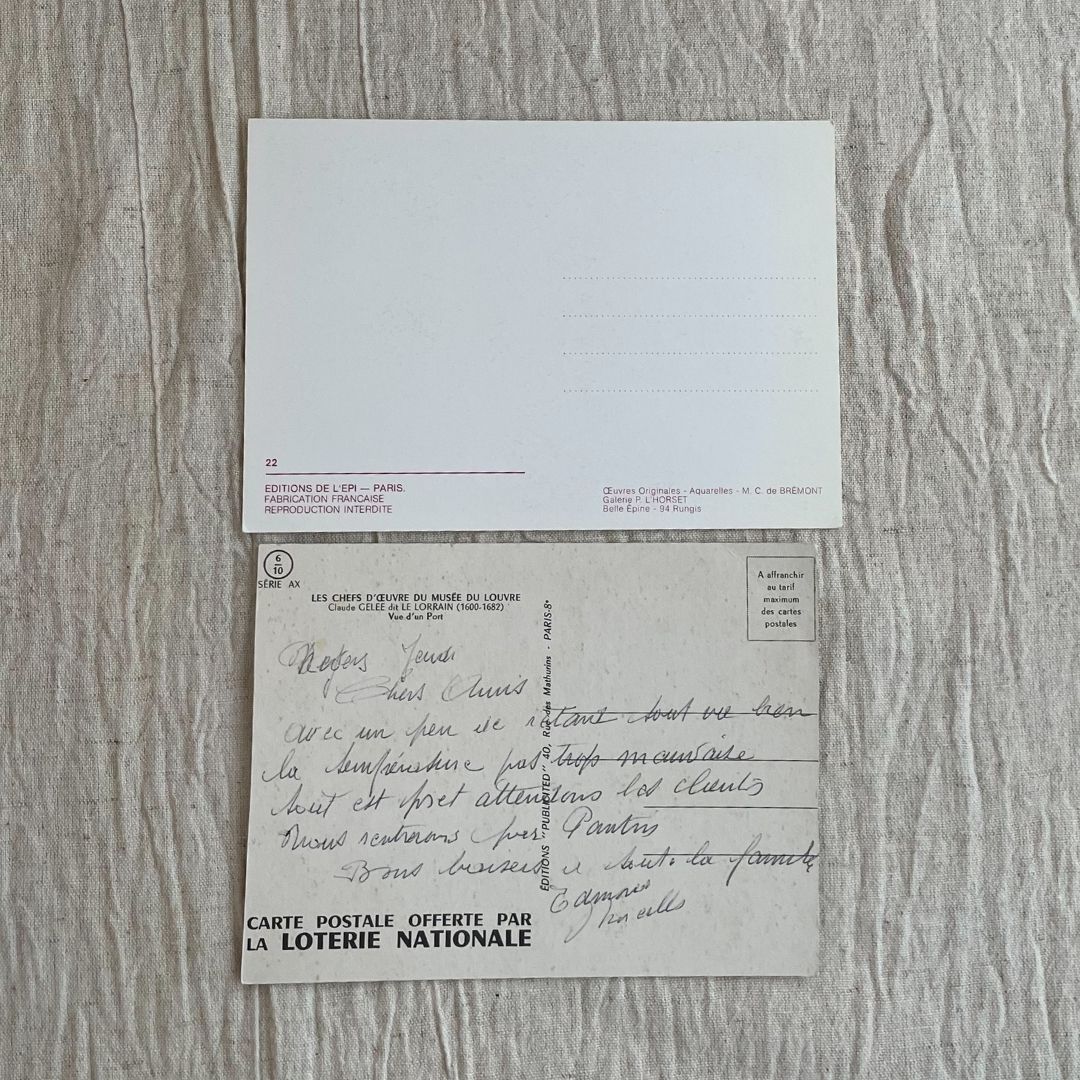 22
EDITIONS DE L'EPI — PARIS.
FABRICATION FRANCAISE
REPRODUCTION INTERDITE
Œuvres Originales - Aquarelles - M. C. de BRÉMONT
Galerie P. L'HORSET
Belle Épine - 94 Rungis
6
10
SÉRIE AX
LES CHEFS D'ŒUVRE DU MUSÉE DU LOUVRE
Claude GELÉE dit LE LORRAIN (1600-1682)
Vue d'un Port
A affranchir
au tarif
maximum
des cartes
postales
ÉDITIONS "PUBLICITED" 40, Rue des Mathurins - PARIS-8e
Jeudi
Chers Amis
avec un peu de retard tout va bien
la température pas trop mauvaise
tout est pret attendons les clients
Nous rentrerons par Pantin
Bons baisers a toute la famille
CARTE POSTALE OFFERTE PAR
LA LOTERIE NATIONALE